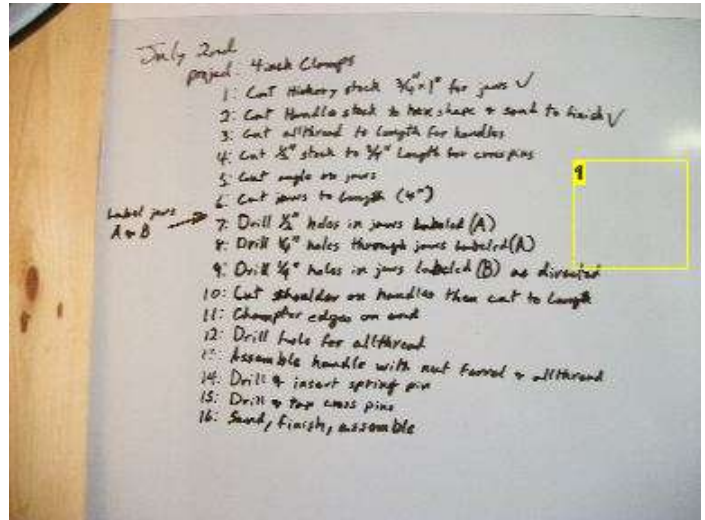 July 2nd
project: 4 inch Clamps
1: Cut Hickory stock 3/4" x 1" for jaws ✓
2: Cut Handle stock to hex shape & sand to finish ✓
3: Cut allthread to Length for handles
4: Cut 1/2" stock to 3/4" Length for cross pins
5: Cut angle on jaws
6: Cut jaws to Length (4")
Label jaws
A & B
7: Drill 1/2" holes in jaws labeled (A)
8: Drill 1/4" holes through jaws labeled (A)
9: Drill 1/4" holes in jaws labeled (B) as directed
10: Cut shoulder on handles then cut to Length
11: Champfer edges on end
12: Drill hole for allthread
13: Assemble handle with nut Ferrel & allthread
14: Drill & insert spring pin
15: Drill & tap cross pins
16: Sand, finish, assemble
9